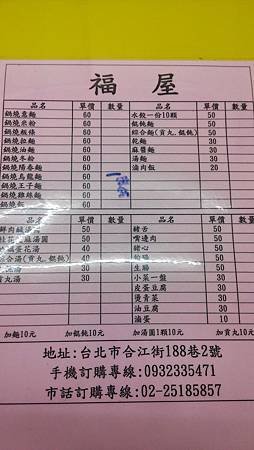 福屋
品名 單價 數量 品名 單價 數量
鍋燒意麵 60 水餃一份10顆 50
鍋燒米粉 60 餛飩麵 50
鍋燒粄條 60 綜合麵(貢丸,餛飩) 50
鍋燒拉麵 60 乾麵 30
鍋燒油麵 60 麻醬麵 30
鍋燒冬粉 60 湯麵 30
鍋燒陽春麵 60 滷肉飯 20
鍋燒烏龍麵 60
鍋燒王子麵 60
鍋燒雞絲麵 60
品名 單價 數量 品名 單價 數量
40 豬舌 50
40 嘴邊肉 50
蛋花湯 40 豬心 50
綜合湯(貢丸,餛飩) 40
30 生腸 50
貢丸湯 30 小菜一盤 30
皮蛋豆腐 30
燙青菜 30
油豆腐 30
滷蛋 10
加麵10元 加餛飩10元 加湯圓1顆10元 加貢丸10元
地址:台北市合江街188巷2號
手機訂購專線:0932335471
市話訂購專線:02-25185857